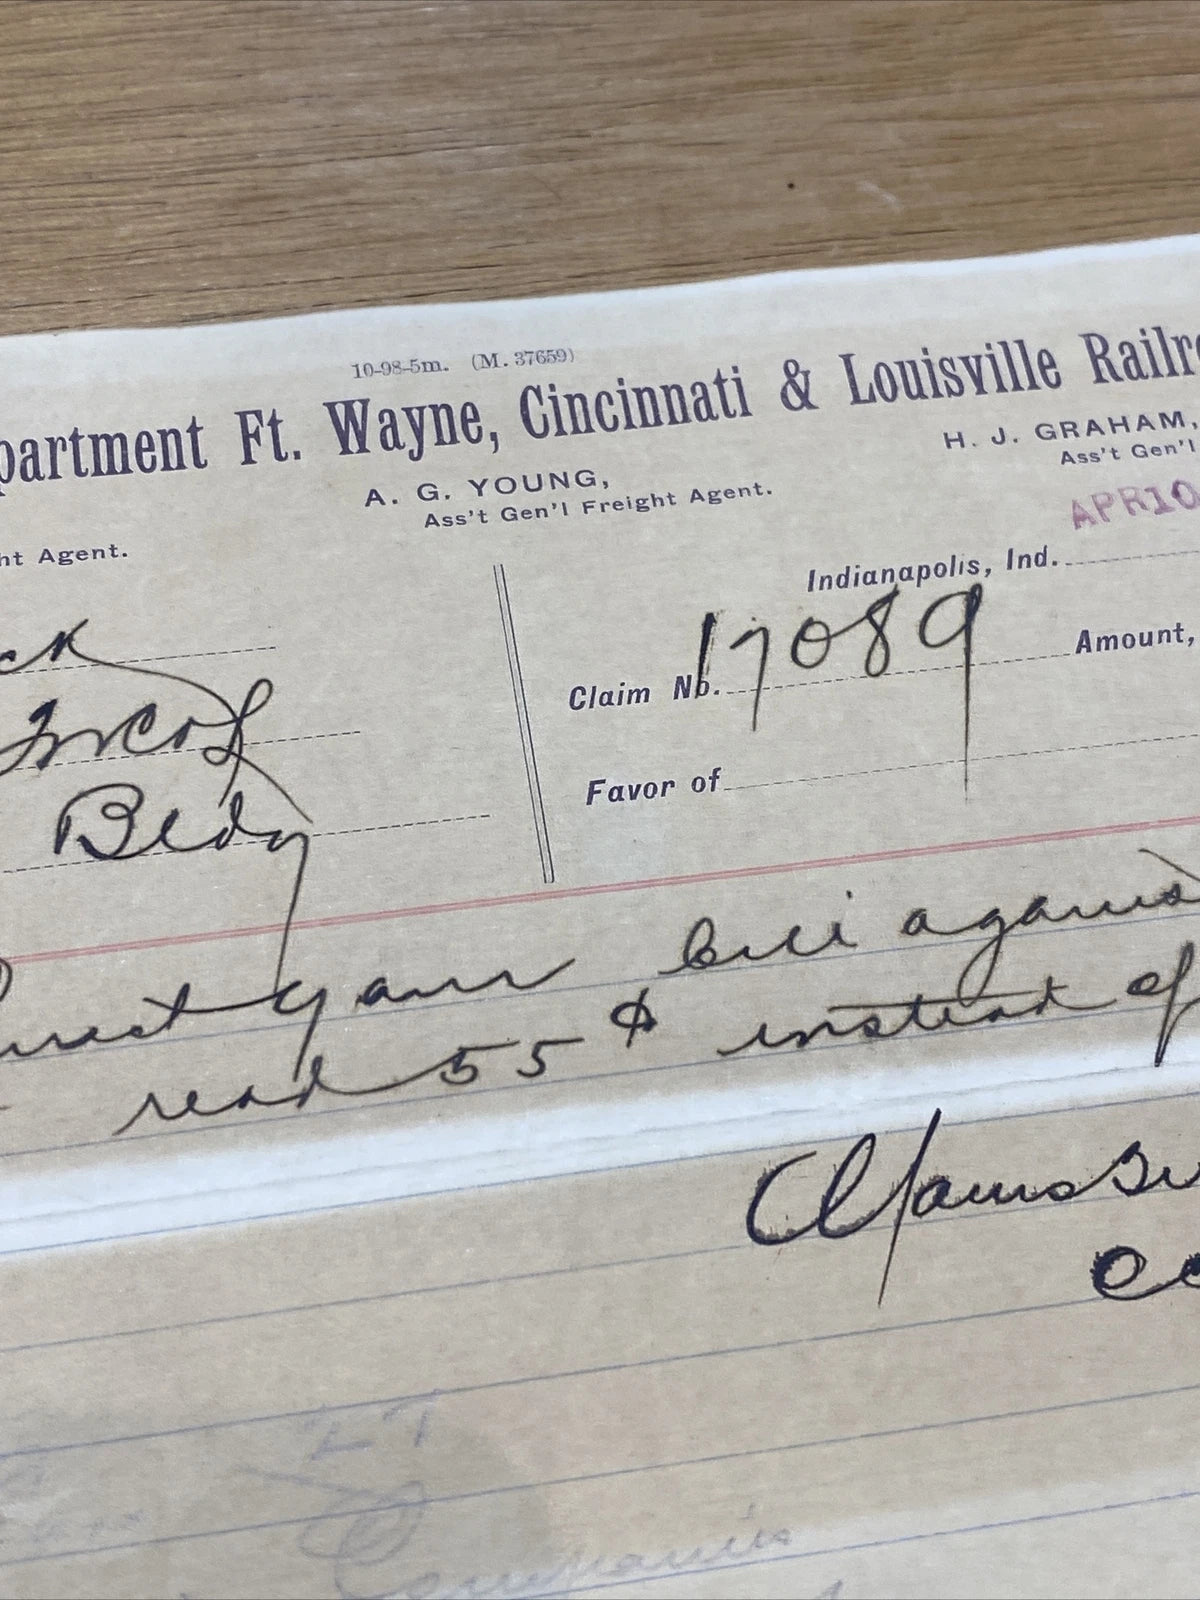 10-98-5m. (M. 37659)
partment Ft. Wayne, Cincinnati & Louisville Railro
A. G. YOUNG,
Ass't Gen'l Freight Agent.
H. J. GRAHAM,
Ass't Gen'l
ht Agent.
APR 10
Indianapolis, Ind.
ck
Claim No. 17089
Amount,
Bldg
Favor of
your bill against
read 55 ¢ instead of
Claims